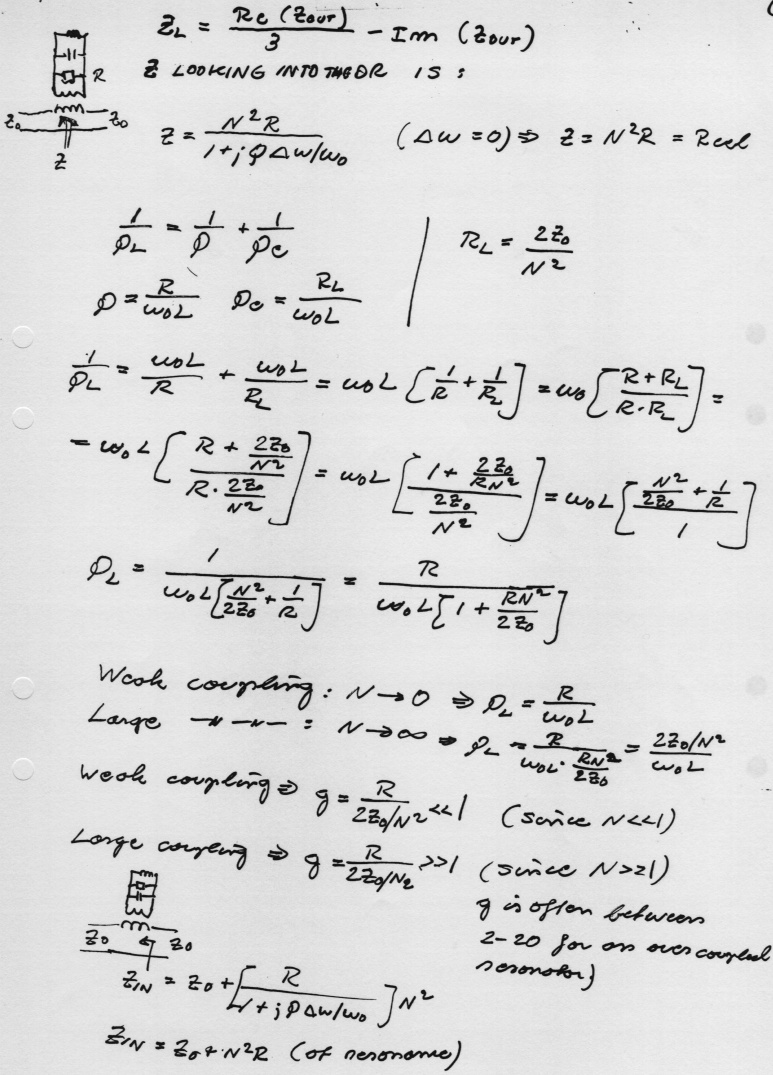 Z_L = Re (Zout) / 3 - Im (Zout)
Z LOOKING INTO THE DR IS :
R
Z0 Z0
Z
Z = N²R / (1 + jQΔω/ω0) (Δω = 0) ⇒ Z = N²R = Real
1/Q_L = 1/Q + 1/Qe
R_L = 2Z0 / N²
Q = R / ω0L Qe = R_L / ω0L
1/Q_L = ω0L/R + ω0L/R_L = ω0L [1/R + 1/R_L] = ω0 [(R + R_L) / (R · R_L)] =
= ω0L [(R + 2Z0/N²) / (R · 2Z0/N²)] = ω0L [(1 + 2Z0/RN²) / (2Z0/N²)] = ω0L [(N²/2Z0 + 1/R) / 1]
Q_L = 1 / (ω0L [N²/2Z0 + 1/R]) = R / (ω0L [1 + RN²/2Z0])
Weak coupling : N → 0 ⇒ Q_L = R / ω0L
Large —〃—〃— : N → ∞ ⇒ Q_L = R / (ω0L · RN²/2Z0) = (2Z0/N²) / ω0L
Weak coupling ⇒ g = R / (2Z0/N²) << 1 (since N << 1)
Large coupling ⇒ g = R / (2Z0/N2) >> 1 (since N >> 1)
g is often between
2-20 for an overcoupled
resonator)
Z0 Z0
Z_IN = Z0 + [R / (1 + jQΔω/ω0)] N²
Z_IN = Z0 + N²R (at resonance)